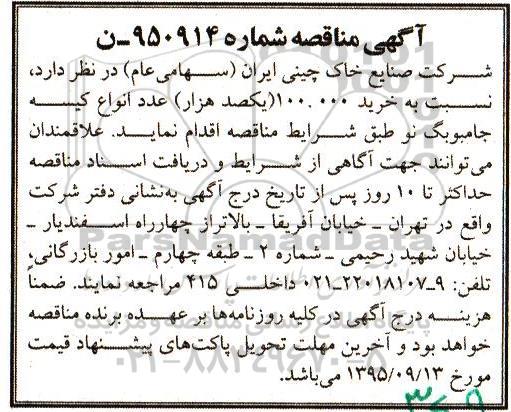 آگهی مناقصه شماره ۹۵۰۹۱۴-ن
شـــرکت صنایع خاک چینی ایران (ســهامی‌عام) در نظر دارد،
نســبت به خرید ۱۰۰.۰۰۰(یکصد هزار) عدد انواع کیســه
جامبوبگ نو طبق شــرایط مناقصه اقدام نمایــد. علاقمندان
می‌توانند جهت آگاهی از شــرایط و دریافت اســناد مناقصه
حداکثر تا ۱۰ روز پس از تاریخ درج آگهی به‌نشانی دفتر شرکت
واقع در تهران ـ خیابان آفریقا ـ بالاتراز چهارراه اســفندیار ـ
خیابان شهید رحیمی ـ شماره ۲ ـ طبقه چهارم ـ امور بازرگانی،
تلفن: ۹ـ۲۲۰۱۸۱۰۷-۰۲۱ داخلــی ۴۱۵ مراجعه نمایند. ضمناً
هزینــه درج آگهی در کلیه روزنامه‌ها بر عهــده برنده مناقصه
خواهد بود و آخرین مهلت تحویل پاکت‌های پیشــنهاد قیمت
مورخ ۱۳۹۵/۰۹/۱۳ می‌باشد.
ParsNamadData
۰۲۱-۸۸۳۴۹۶۷۰-۵